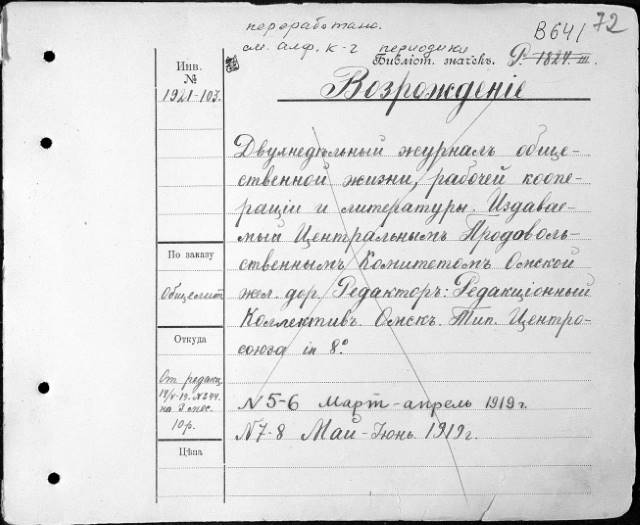 переработано.
см. алф. к-г периодики
В641 72
Библіот. значекъ. Р. 1824. III.
Инв. №
1921-103.
Возрожденіе
Двухнедѣльный журналъ обще-
ственной жизни, рабочей коопе-
раціи и литературы. Издавае-
мый Центральнымъ Продоволь-
ственнымъ Комитетомъ Омской
жел. дор. Редакторъ: Редакціонный
Коллективъ. Омскъ. Тип. Центро-
союза in 8.º
По заказу
Общелит
Откуда
От редакц
на 3 мес.
10 р.
Цѣна
N 5-6 Март-апрель 1919 г.
N 7-8 Май-Іюнь 1919 г.